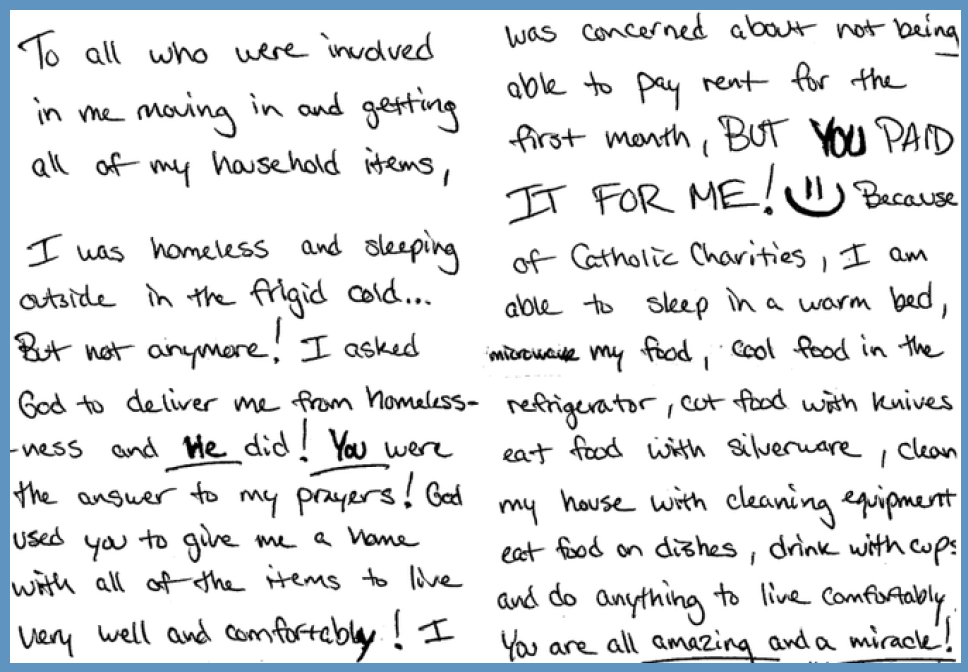 To all who were involved
in me moving in and getting
all of my household items,
I was homeless and sleeping
outside in the frigid cold...
But not anymore! I asked
God to deliver me from homeless-
-ness and He did! You were
the answer to my prayers! God
used you to give me a home
with all of the items to live
very well and comfortably! I
was concerned about not being
able to pay rent for the
first month, BUT YOU PAID
IT FOR ME! Because
of Catholic Charities, I am
able to sleep in a warm bed,
microwave my food, cool food in the
refrigerator, cut food with knives
eat food with silverware, clean
my house with cleaning equipment
eat food on dishes, drink with cups
and do anything to live comfortably.
You are all amazing and a miracle!